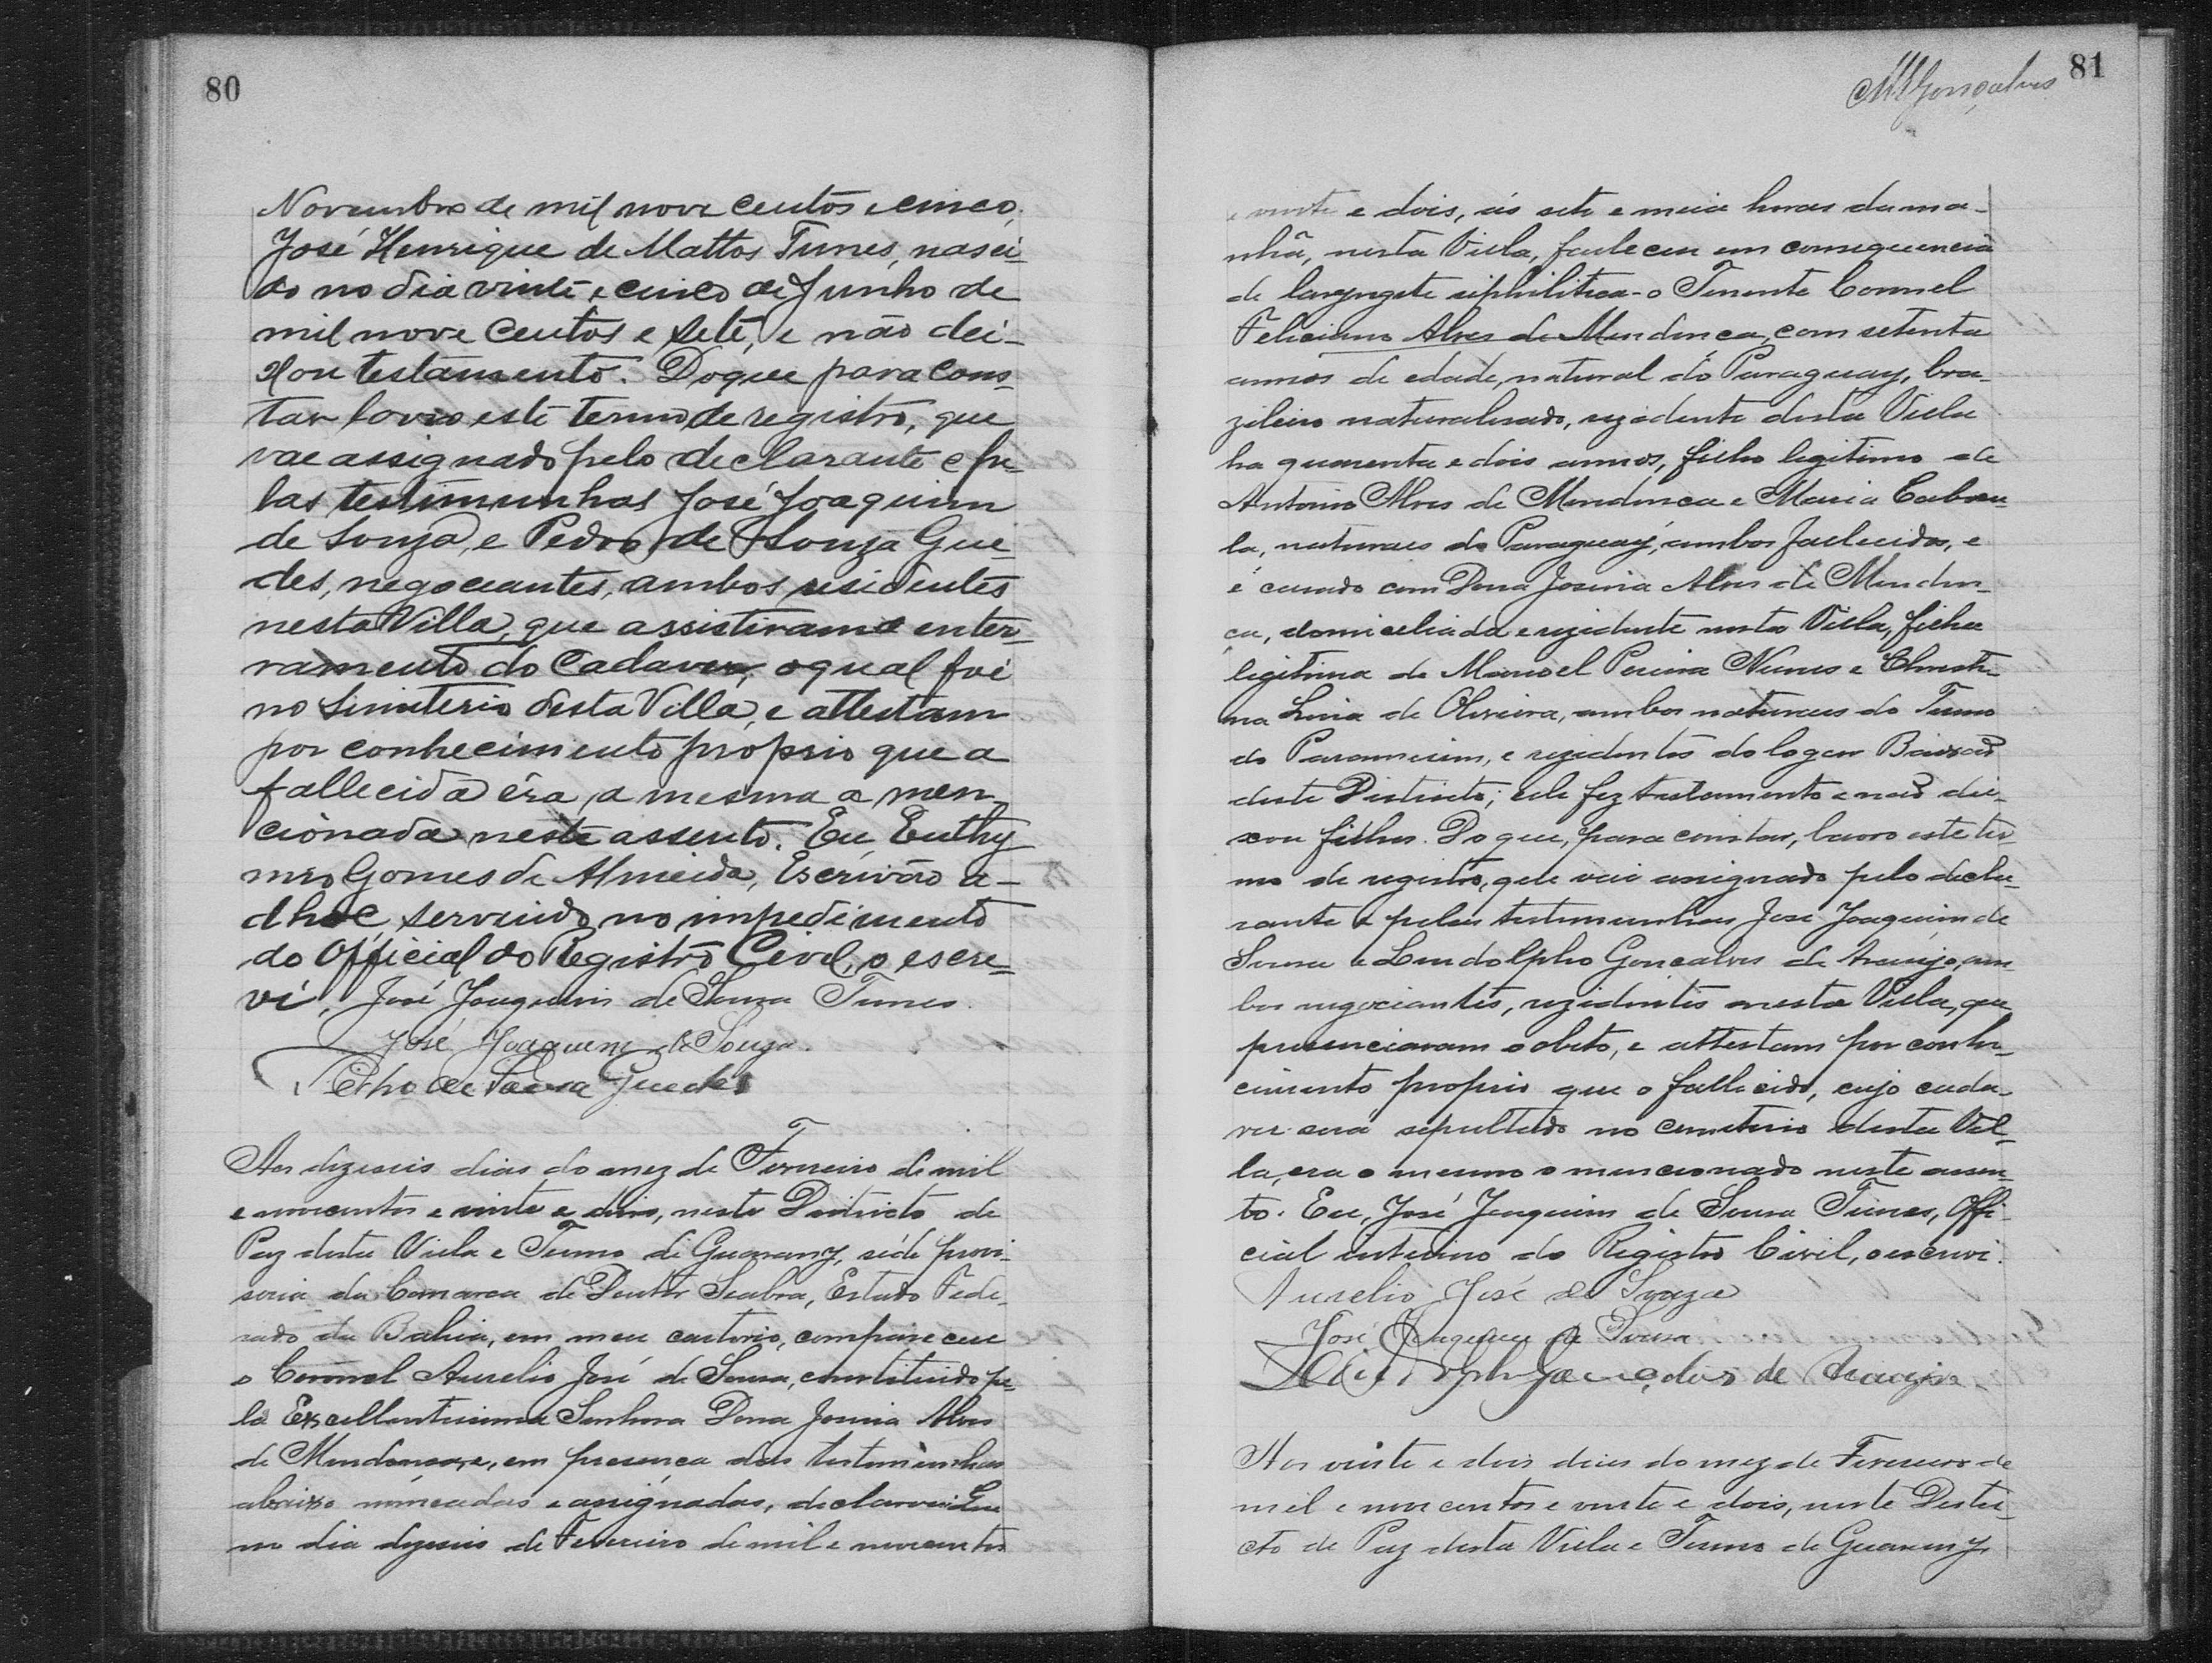 80
Novembro de mil nove centos e cinco,
José Henrique de Mattos Tunes, nasci-
do no dia vinte e cinco de Junho de
mil nove centos e sete, e não dei-
xou testamento. Do que para cons-
tar lavro este termo de registro, que
vae assignado pelo declarante e pe-
las testimunhas José Joaquim
de Souza, e Pedro de Souza Gue-
des, negociantes, ambos residentes
nesta Villa, que assistiram o enter-
ramento do Cadaver, o qual foi
no Simiterio desta Villa, e attestam
por conhecimento proprio que a
fallecida éra a mesma a men-
cionada neste assento. Eu Euthy
mio Gomes de Almeida, Escrivão a-
dhoc, servindo no impedimento
do Official do Registro Civel, o escre-
vi. José Joaquim de Souza Tunes.
José Joaquim de Souza.
Pedro de Souza Guedes
Aos dezeseis dias do mez de Fevereiro de mil
e novecentos e vinte e dois, neste Districto de
Paz desta Villa e Termo de Guarany, séde provi-
soria da Comarca de Doutor Seabra, Estado Fede-
rado da Bahia, em meu cartorio, compareceu
o Coronel Aurelio José de Sousa, constituido pe-
la Excellentissima Senhora Dona Josina Alves
de Mendonça, e, em presença das testimunhas
abaixo nomeadas e assignadas, declarou: Que
no dia dezeseis de Fevereiro de mil e novecentos
81
MGonçalves
e vinte e dois, ás sete e meia horas da ma-
nhã, nesta Villa, falleceu em consequencia
de laryngite siphilitica - o Tenente Coronel
Feliciano Alves de Mendonça, com setenta
annos de edade, natural do Paraguay, bra-
zileiro naturalisado, rezidente desta Villa
ha quarenta e dois annos, filho legitimo de
Antonio Alves de Mendonça e Maria
la, naturaes do Paraguay, ambos fallecidos, e
é casado com Dona Josina Alves de Mendon-
ça, domiciliada e rezidente nesta Villa, filha
legitima de Manoel Pereira Nunes e Christi-
na Luzia de Oliveira, ambos naturaes do Termo
do Paramirim, e rezidentes do logar Baixão
deste Districto; elle fez testamento e não dei-
xou filhos. Do que, para constar, lavro este ter-
mo de registro, que vai assignado pelo decla-
rante e pelas testimunhas José Joaquim de
Sousa e Lindolpho Gonçalves de Araujo, am-
bos negociantes, rezidentes nesta Villa, que
presenciaram o obito, e attestam por conhe-
cimento proprio que o fallecido, cujo cada-
ver será sepultado no cemiterio desta Vil-
la, era o mesmo o mencionado neste assen-
to. Eu, José Joaquim de Sousa Tunes, Offi-
cial interino do Registro Civil, o escrevi.
Aurelio José de Souza
José Joaquim de Sousa
Lindolpho Gonçalves de Araujo
Aos vinte e dois dias do mez de Fevereiro de
mil e novecentos e vinte e dois, neste Distri-
cto de Paz desta Villa e Termo de Guarany